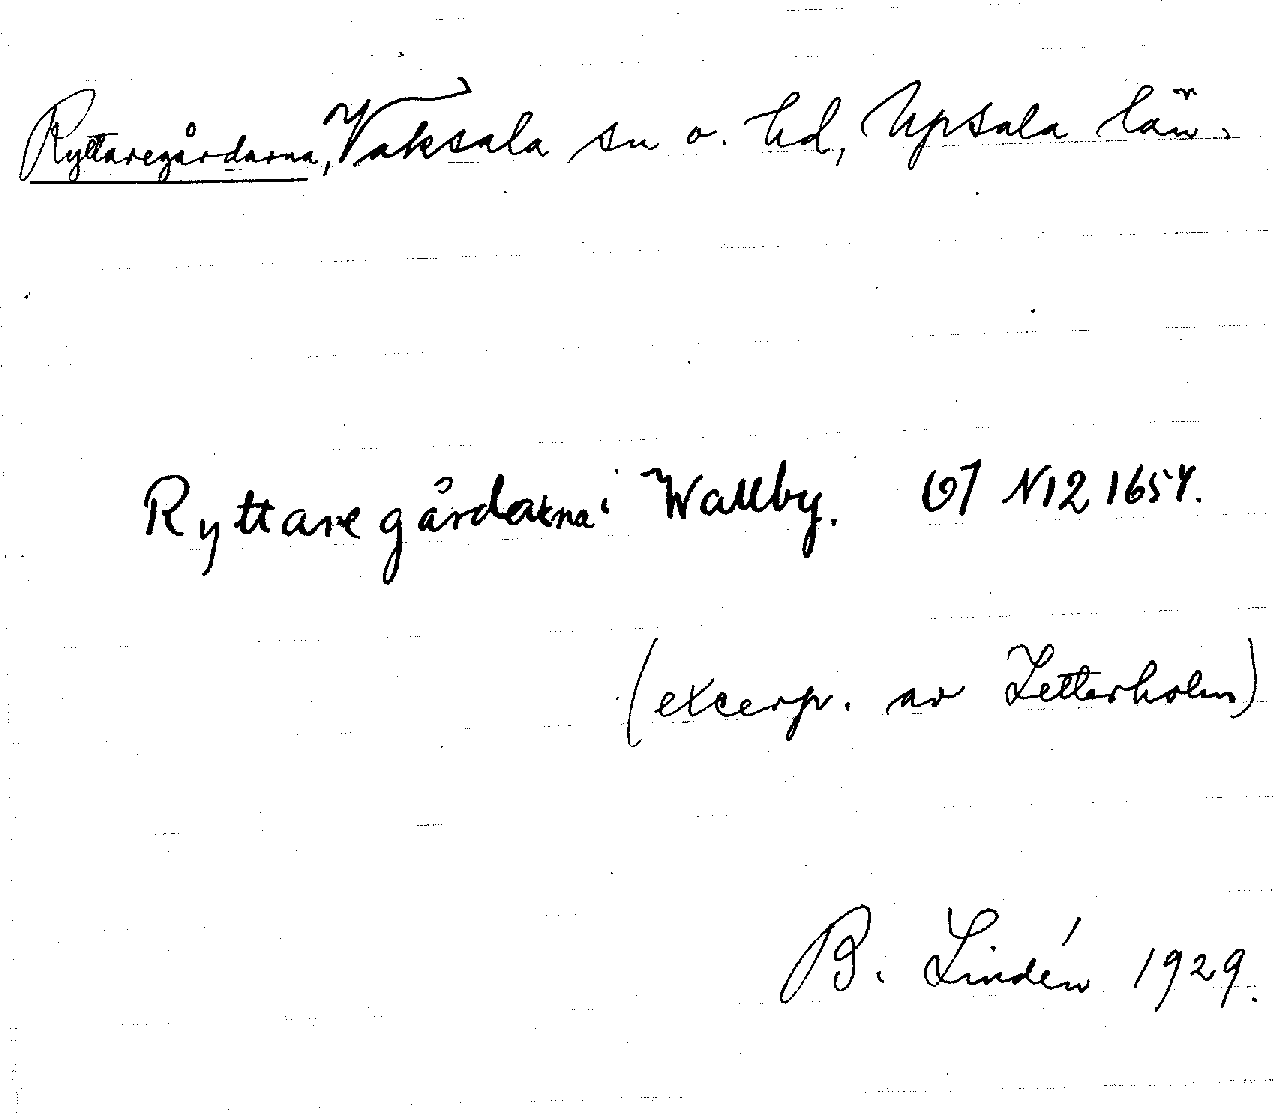 Ryttaregårdarna, Vaksala sn o. hd, Upsala län.
Ryttaregårdarna i Wallby. GJ N12 1654.
(excerp. av Zetterholm)
B. Lindén 1929.